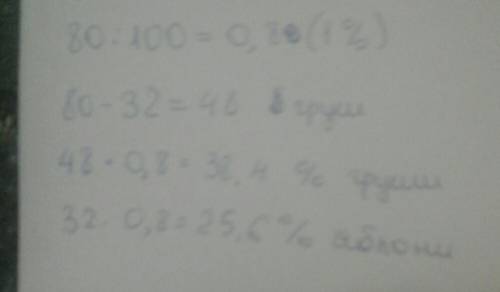 80:100 = 0,8 (1%)
80 - 32 = 48 груш
48 · 0,8 = 38,4 % груши
32 · 0,8 = 25,6 % яблони